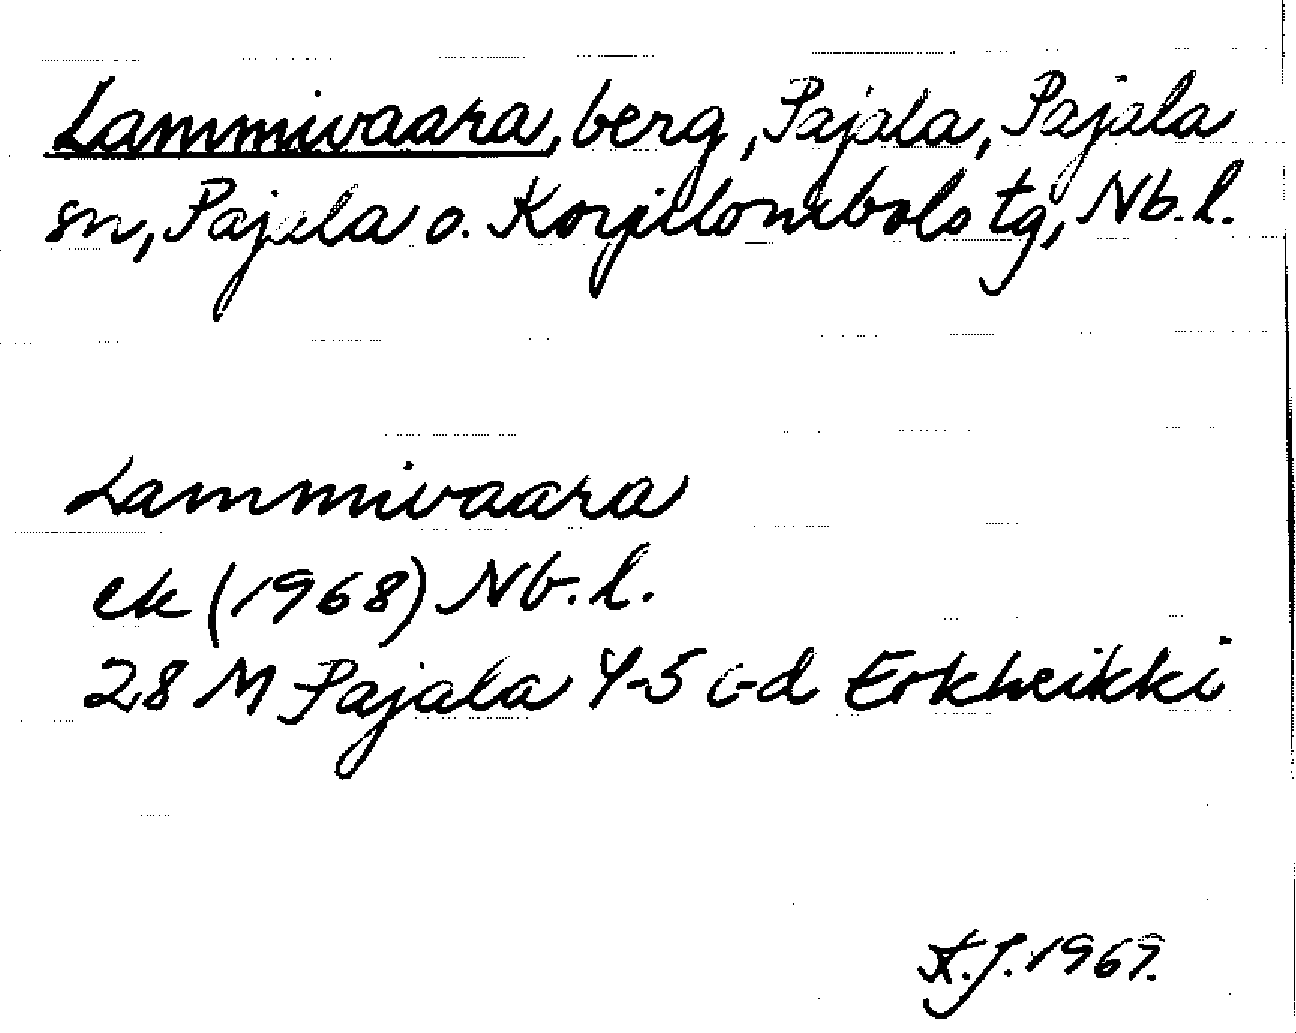 Lammivaara, berg, Pajala, Pajala
sn, Pajala o. Korpilombolo tg, Nb. l.
Lammivaara
ek (1968) Nb. l.
28 M Pajala 4-5 c-d Erkheikki
1969.